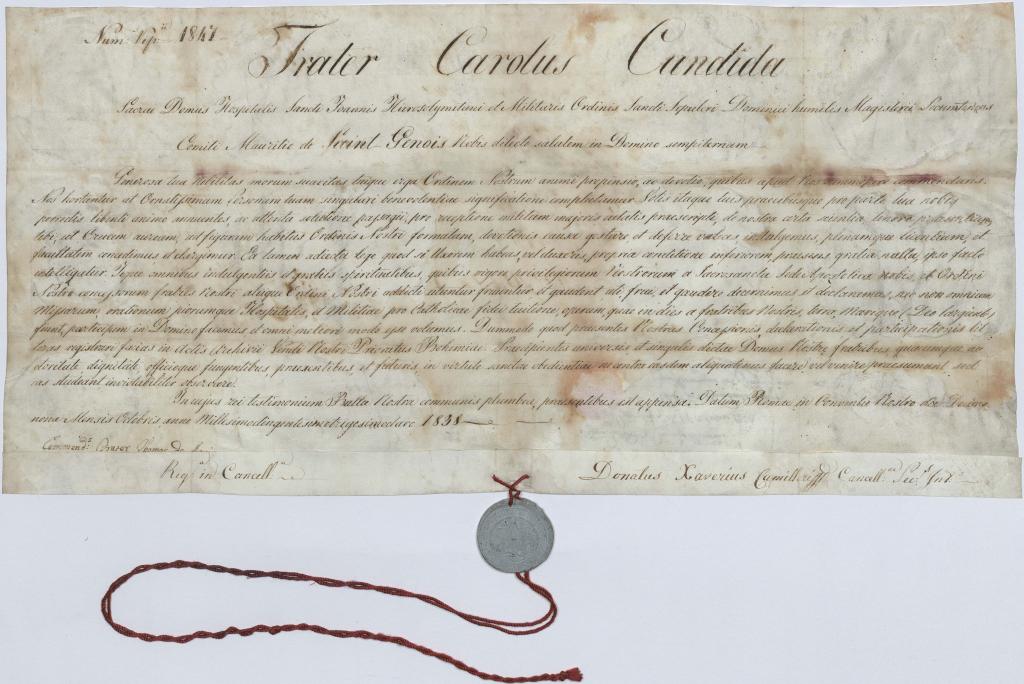 Num. Rep.m 1847
Frater Carolus Candida
Sacrae Domus Hospitalis Sancti Joannis Hierosolymitani et Militaris Ordinis Sancti Sepulcri Dominici humilis Magisterii Locumtenens
Comiti Mauritio de Saint Genois Nobis dilecto salutem in Domino sempiternam
Generosa tua Nobilitas morum suavitas, tuique erga Ordinem Nostrum animi propensio, ac devotio, quibus apud Nos commendaris,
Nos hortantur ut Ornatissimam Personam tuam singulari benevolentiae significatione complectamur. Votis itaque tuis precibusque pro parte tua nobis
porrectis libenti animo annuentes, ac attenta solutione passagii, pro receptione militum majoris aetatis praescripti, de nostra certa scientia tenore
tibi, ut Crucem auream, ad figuram habitus Ordinis Nostri formatam, devotionis causa gestare et deferre valeas, indulgemus, plenamque licentiam, et
facultatem concedimus et elargimur. Ea tamen adjecta lege quod si Thorum habeas, vel duxeris, propria conditione inferiorem praesens gratia nulla, ipso facto
intelligatur. Teque omnibus indulgentiis et gratiis spiritualibus, quibus vigore privilegiorum Nostrorum a Sacrosancta Sede Apostolica nobis, et Ordini
Nostro concessorum fratres Nostri aliique Ordini Nostri addicti utuntur fruuntur et gaudent uti, frui, et gaudere decernimus et declaramus, nec non omnium
Missarum orationum piorumque Hospitalis, et Militiae pro Catholicae fidei tuitione, operum, quae in dies a fratribus Nostris, terra, Marique (Deo largiente)
fiunt, participem in Domino facimus et omni meliori modo esse volumus. Dummodo quod praesentes Nostras Concessionis, declarationis et participationis lit
teras registrari facias in Actis Archivii Vendi Nostri Prioratus Bohemiae. Praecipientes universis et singulis dictae Domus Nostrae fratribus quacumque au
ctoritate dignitate officioque fungentibus praesentibus et futuris, in virtute sanctae obedientiae ne contra easdem aliquatenus facere vel venire praesumant, sed
eas studeant inviolabiliter observare.
In cujus rei testimonium Bulla Nostra communis plumbea, praesentibus est appensa. Datum Romae in Conventu Nostro die Decima
nona Mensis Octobris anno Millesimo octingentesimo trigesimo octavo 1838
Reg.ta in Cancell.a
Donatus Xaverius Cancell.ae Sec.s Int.s